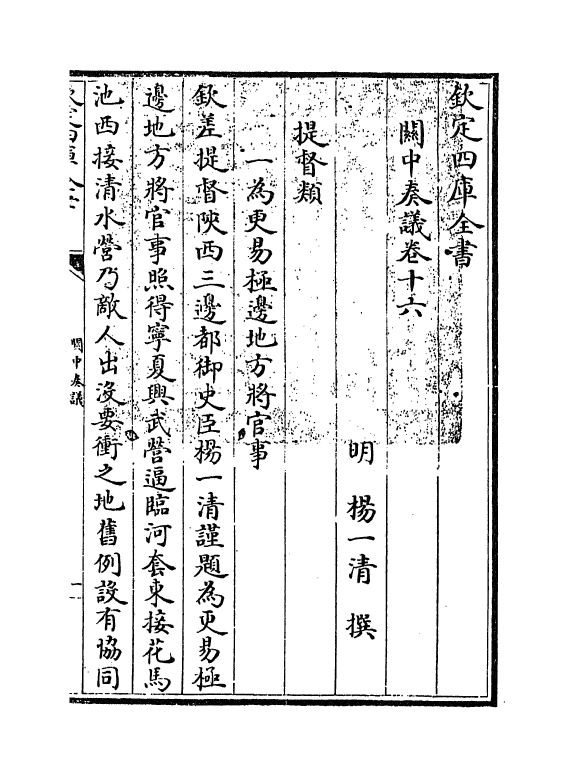 欽定四庫全書
關中奏議卷十六
明 楊一清 撰
提督類
一為更易極邊地方將官事
欽差提督陝西三邊都御史臣楊一清謹題為更易極
邊地方將官事照得寧夏興武營逼臨河套東接花馬
池西接清水營乃敵人出沒要衝之地舊例設有協同
關中奏議
一